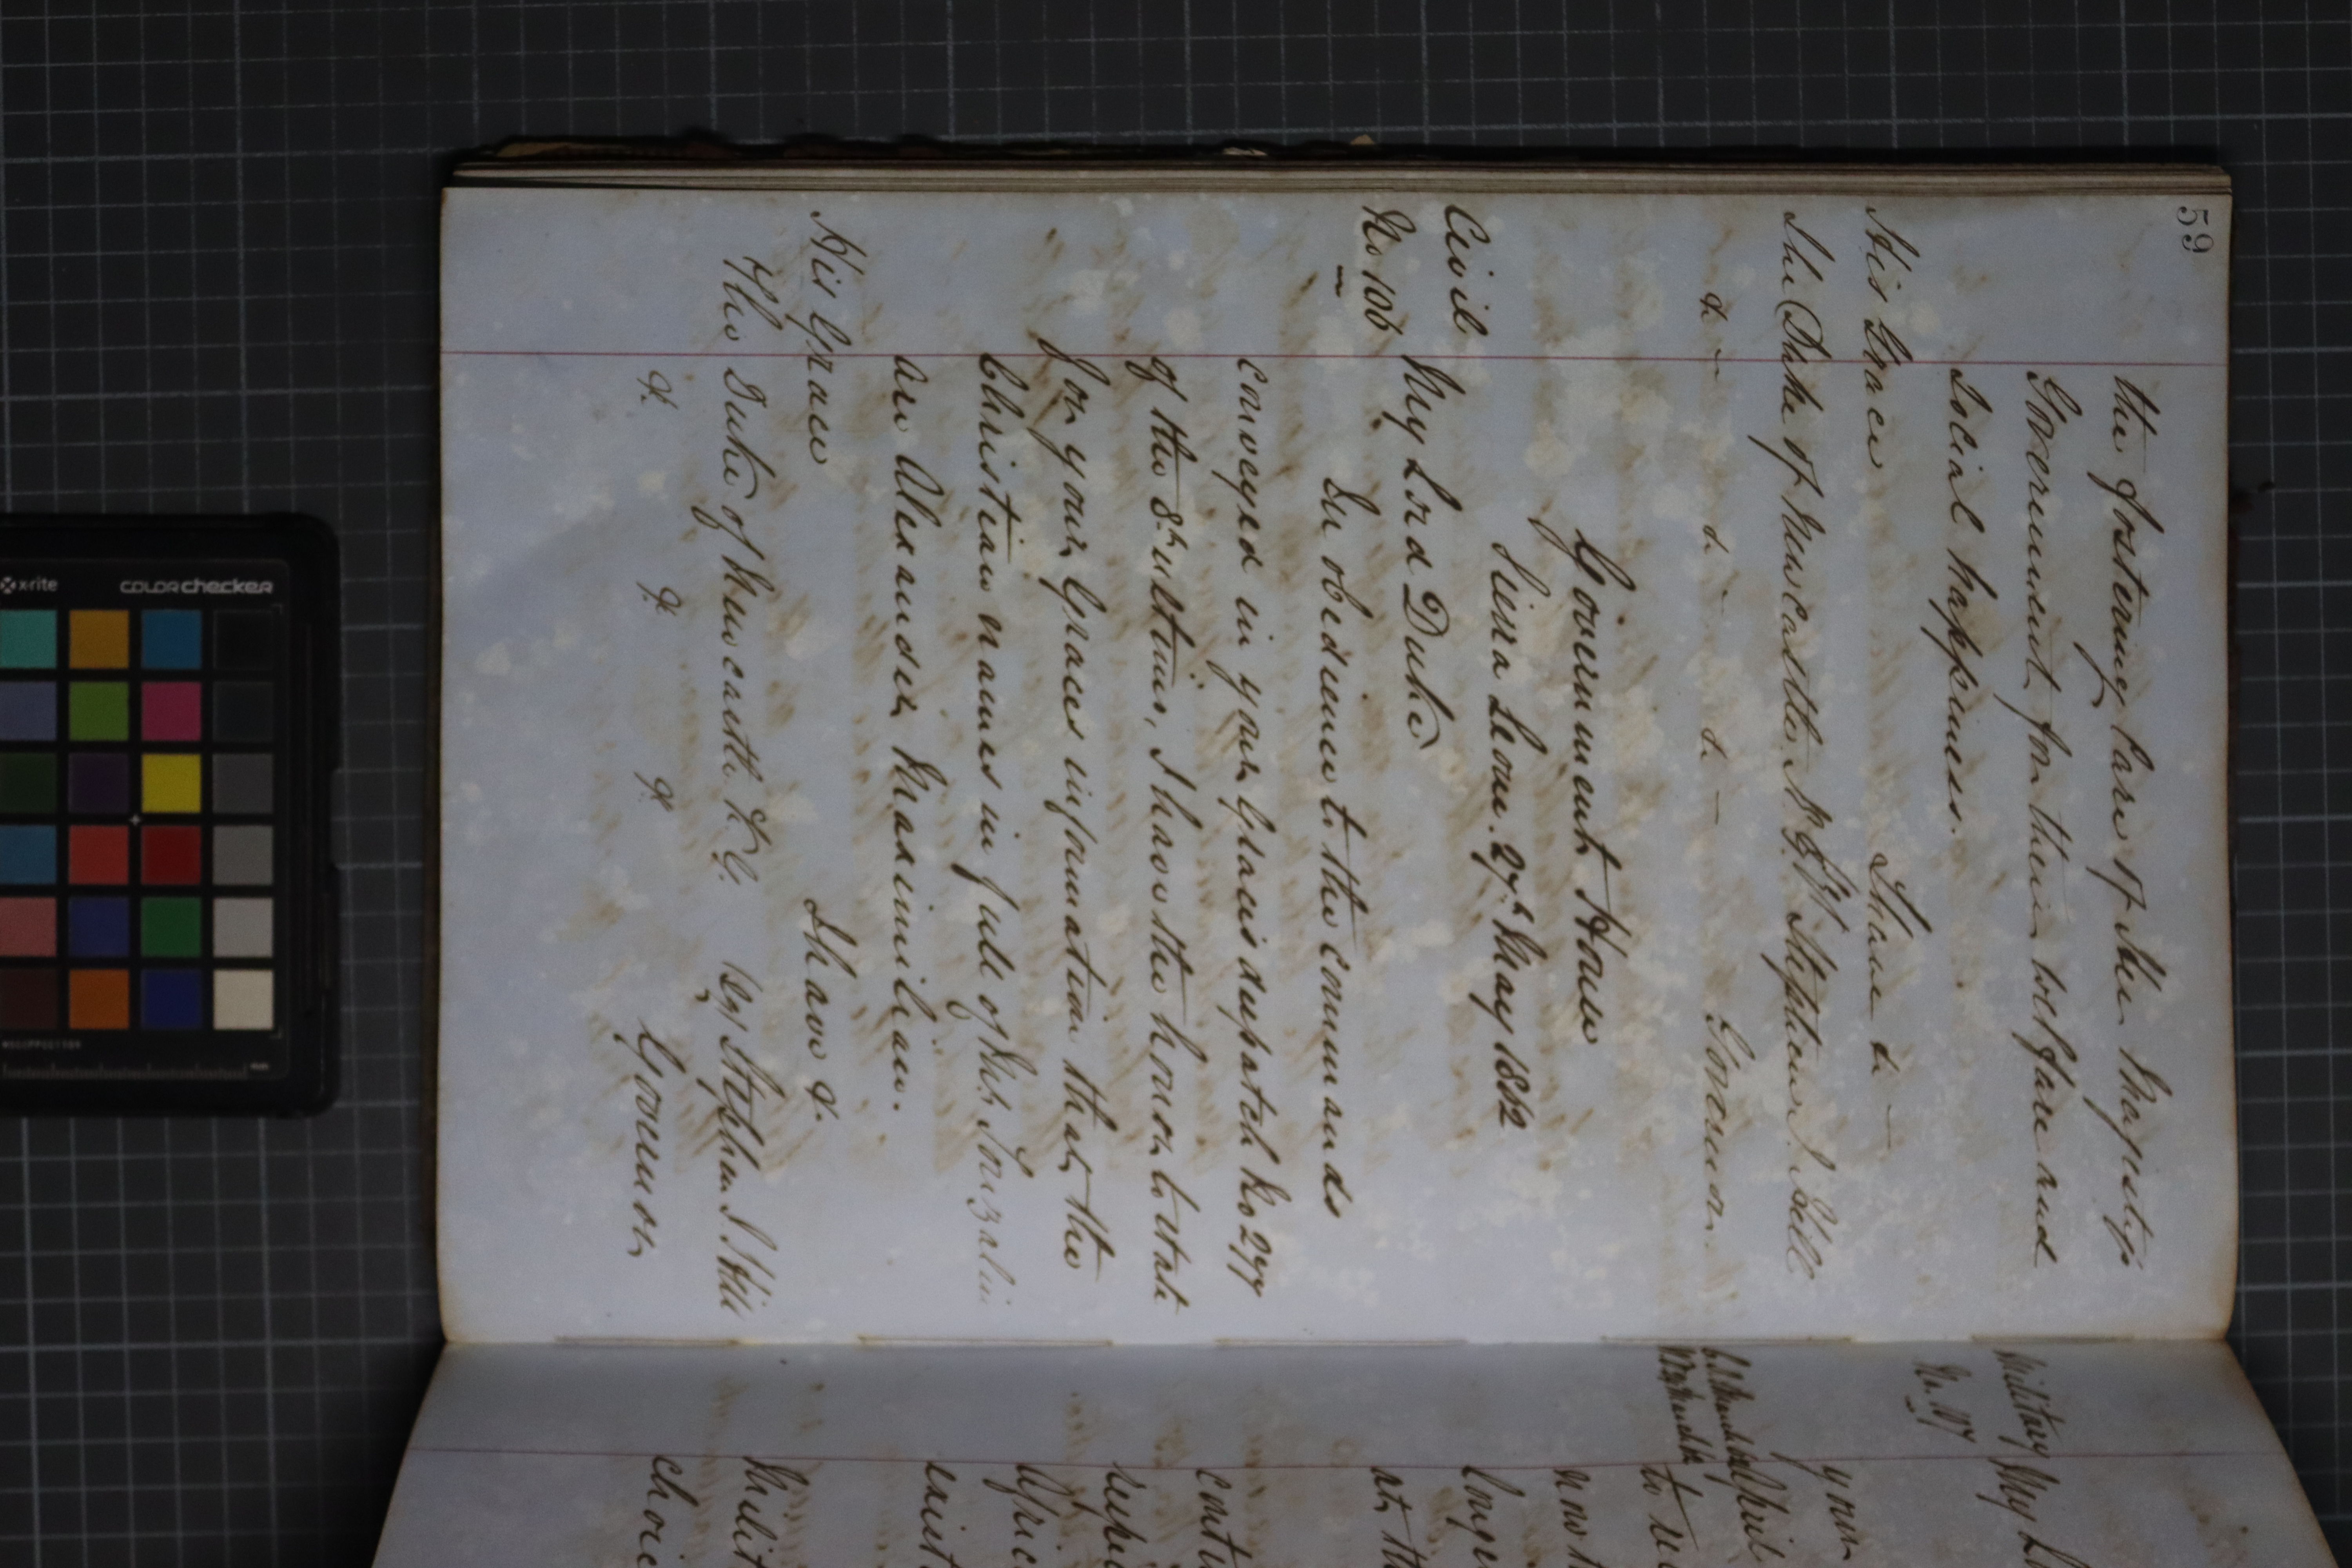 59
the fostering Care of Her Majesty's
Government, for their welfare and
Social happiness.
I have &c
His Grace
The Duke of Newcastle K.G. Stephen J. Hill
&c &c &c Governor.
Government House
Sierra Leone. 27th May 1862
Civil
No 106
My Lord Duke
In obedience to the commands
conveyed in your Graces despatch No 277
of the 8th ultimo, I have the honor to state
for your Graces information that, the
Christian names in full of Mr. Gonzalii
are Alexander Maximilian.
I have &.
His Grace
The Duke of Newcastle K.G.
(sg) Stephen J. Hill
&. &. &.
Governor
Military
My L
your
April
to
now
long
at, th
cont
Afric
exist
Milit
choic
x-rite
colorchecker